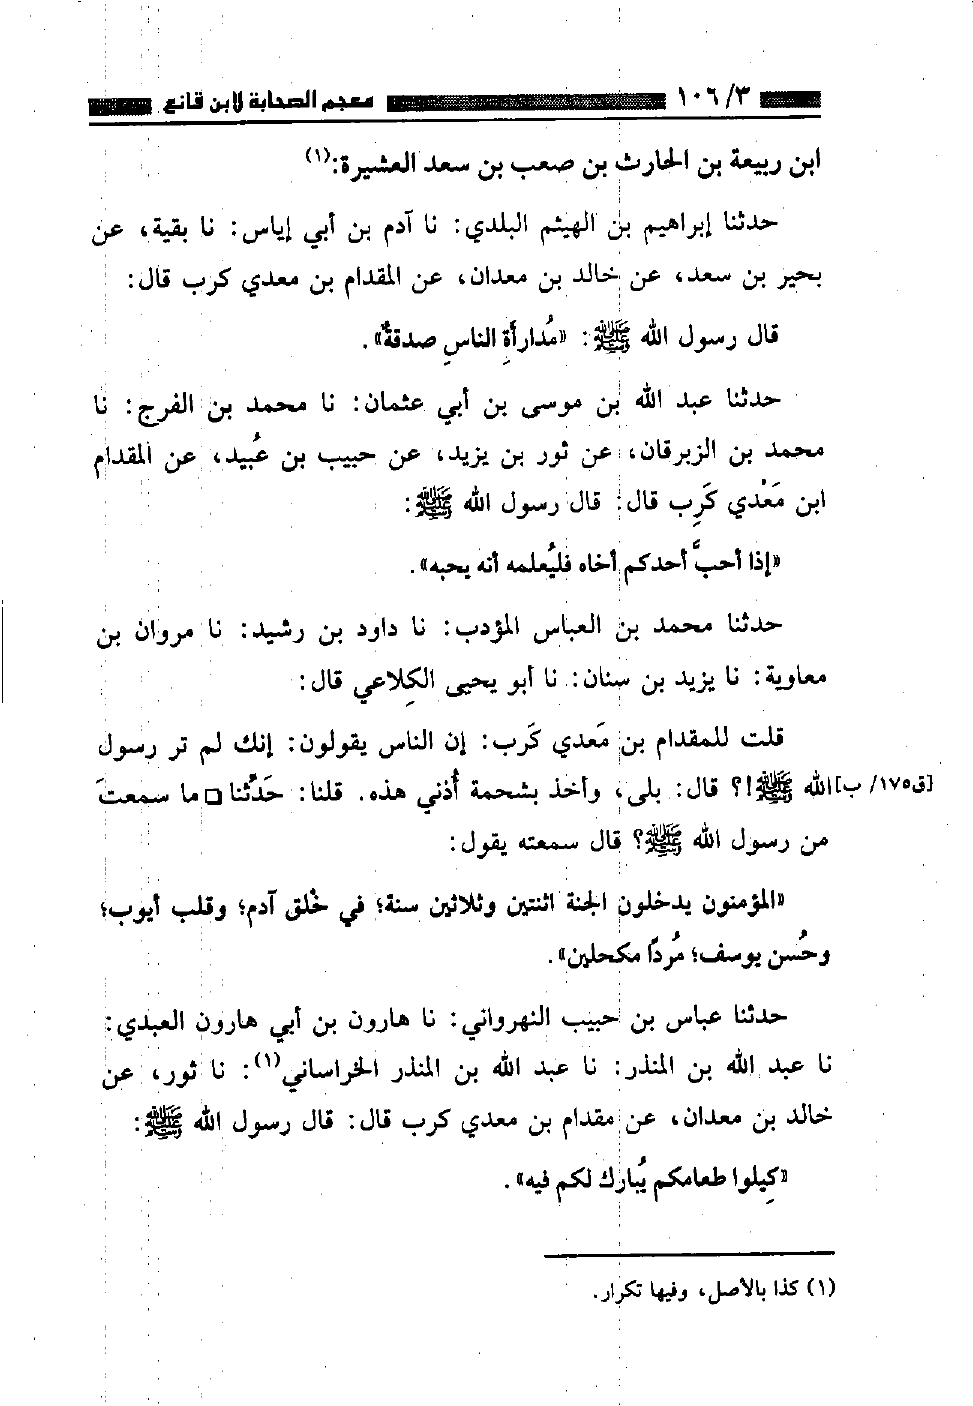 ٣/ ١٠٦ معجم الصحابة لابن قانع
ابن ربيعة بن الحارث بن صعب بن سعد العشيرة:(١)
حدثنا إبراهيم بن الهيثم البلدي: نا آدم بن أبي إياس: نا بقية، عن
بحير بن سعد، عن خالد بن معدان، عن المقدام بن معدي كرب قال:
قال رسول الله ﷺ: «مُدارأةِ الناسِ صدقةٌ».
حدثنا عبد الله بن موسى بن أبي عثمان: نا محمد بن الفرج: نا
محمد بن الزبرقان، عن ثور بن يزيد، عن حبيب بن عُبيد، عن المقدام
ابن مَعْدي كَرِب قال: قال رسول الله ﷺ:
«إذا أحبَّ أحدكم أخاه فليُعلمه أنه يحبه».
حدثنا محمد بن العباس المؤدب: نا داود بن رشيد: نا مروان بن
معاوية: نا يزيد بن سنان: نا أبو يحيى الكِلاعي قال:
قلت للمقدام بن مَعدي كَرب: إن الناس يقولون: إنك لم تر رسول
[ق١٧٥/ ب] الله ﷺ!؟ قال: بلى، وأخذ بشحمة أُذني هذه. قلنا: حَدِّثنا □ ما سمعتَ
من رسول الله ﷺ؟ قال سمعته يقول:
«المؤمنون يدخلون الجنة اثنتين وثلاثين سنة؛ في خُلق آدم؛ وقلب أيوب؛
وحُسن يوسف؛ مُردًا مكحلين».
حدثنا عباس بن حبيب النهرواني: نا هارون بن أبي هارون العبدي:
نا عبد الله بن المنذر: نا عبد الله بن المنذر الخراساني(١): نا ثور، عن
خالد بن معدان، عن مقدام بن معدي كرب قال: قال رسول الله ﷺ:
«كِيلوا طعامكم يُبارك لكم فيه».
(١) كذا بالأصل، وفيها تكرار.